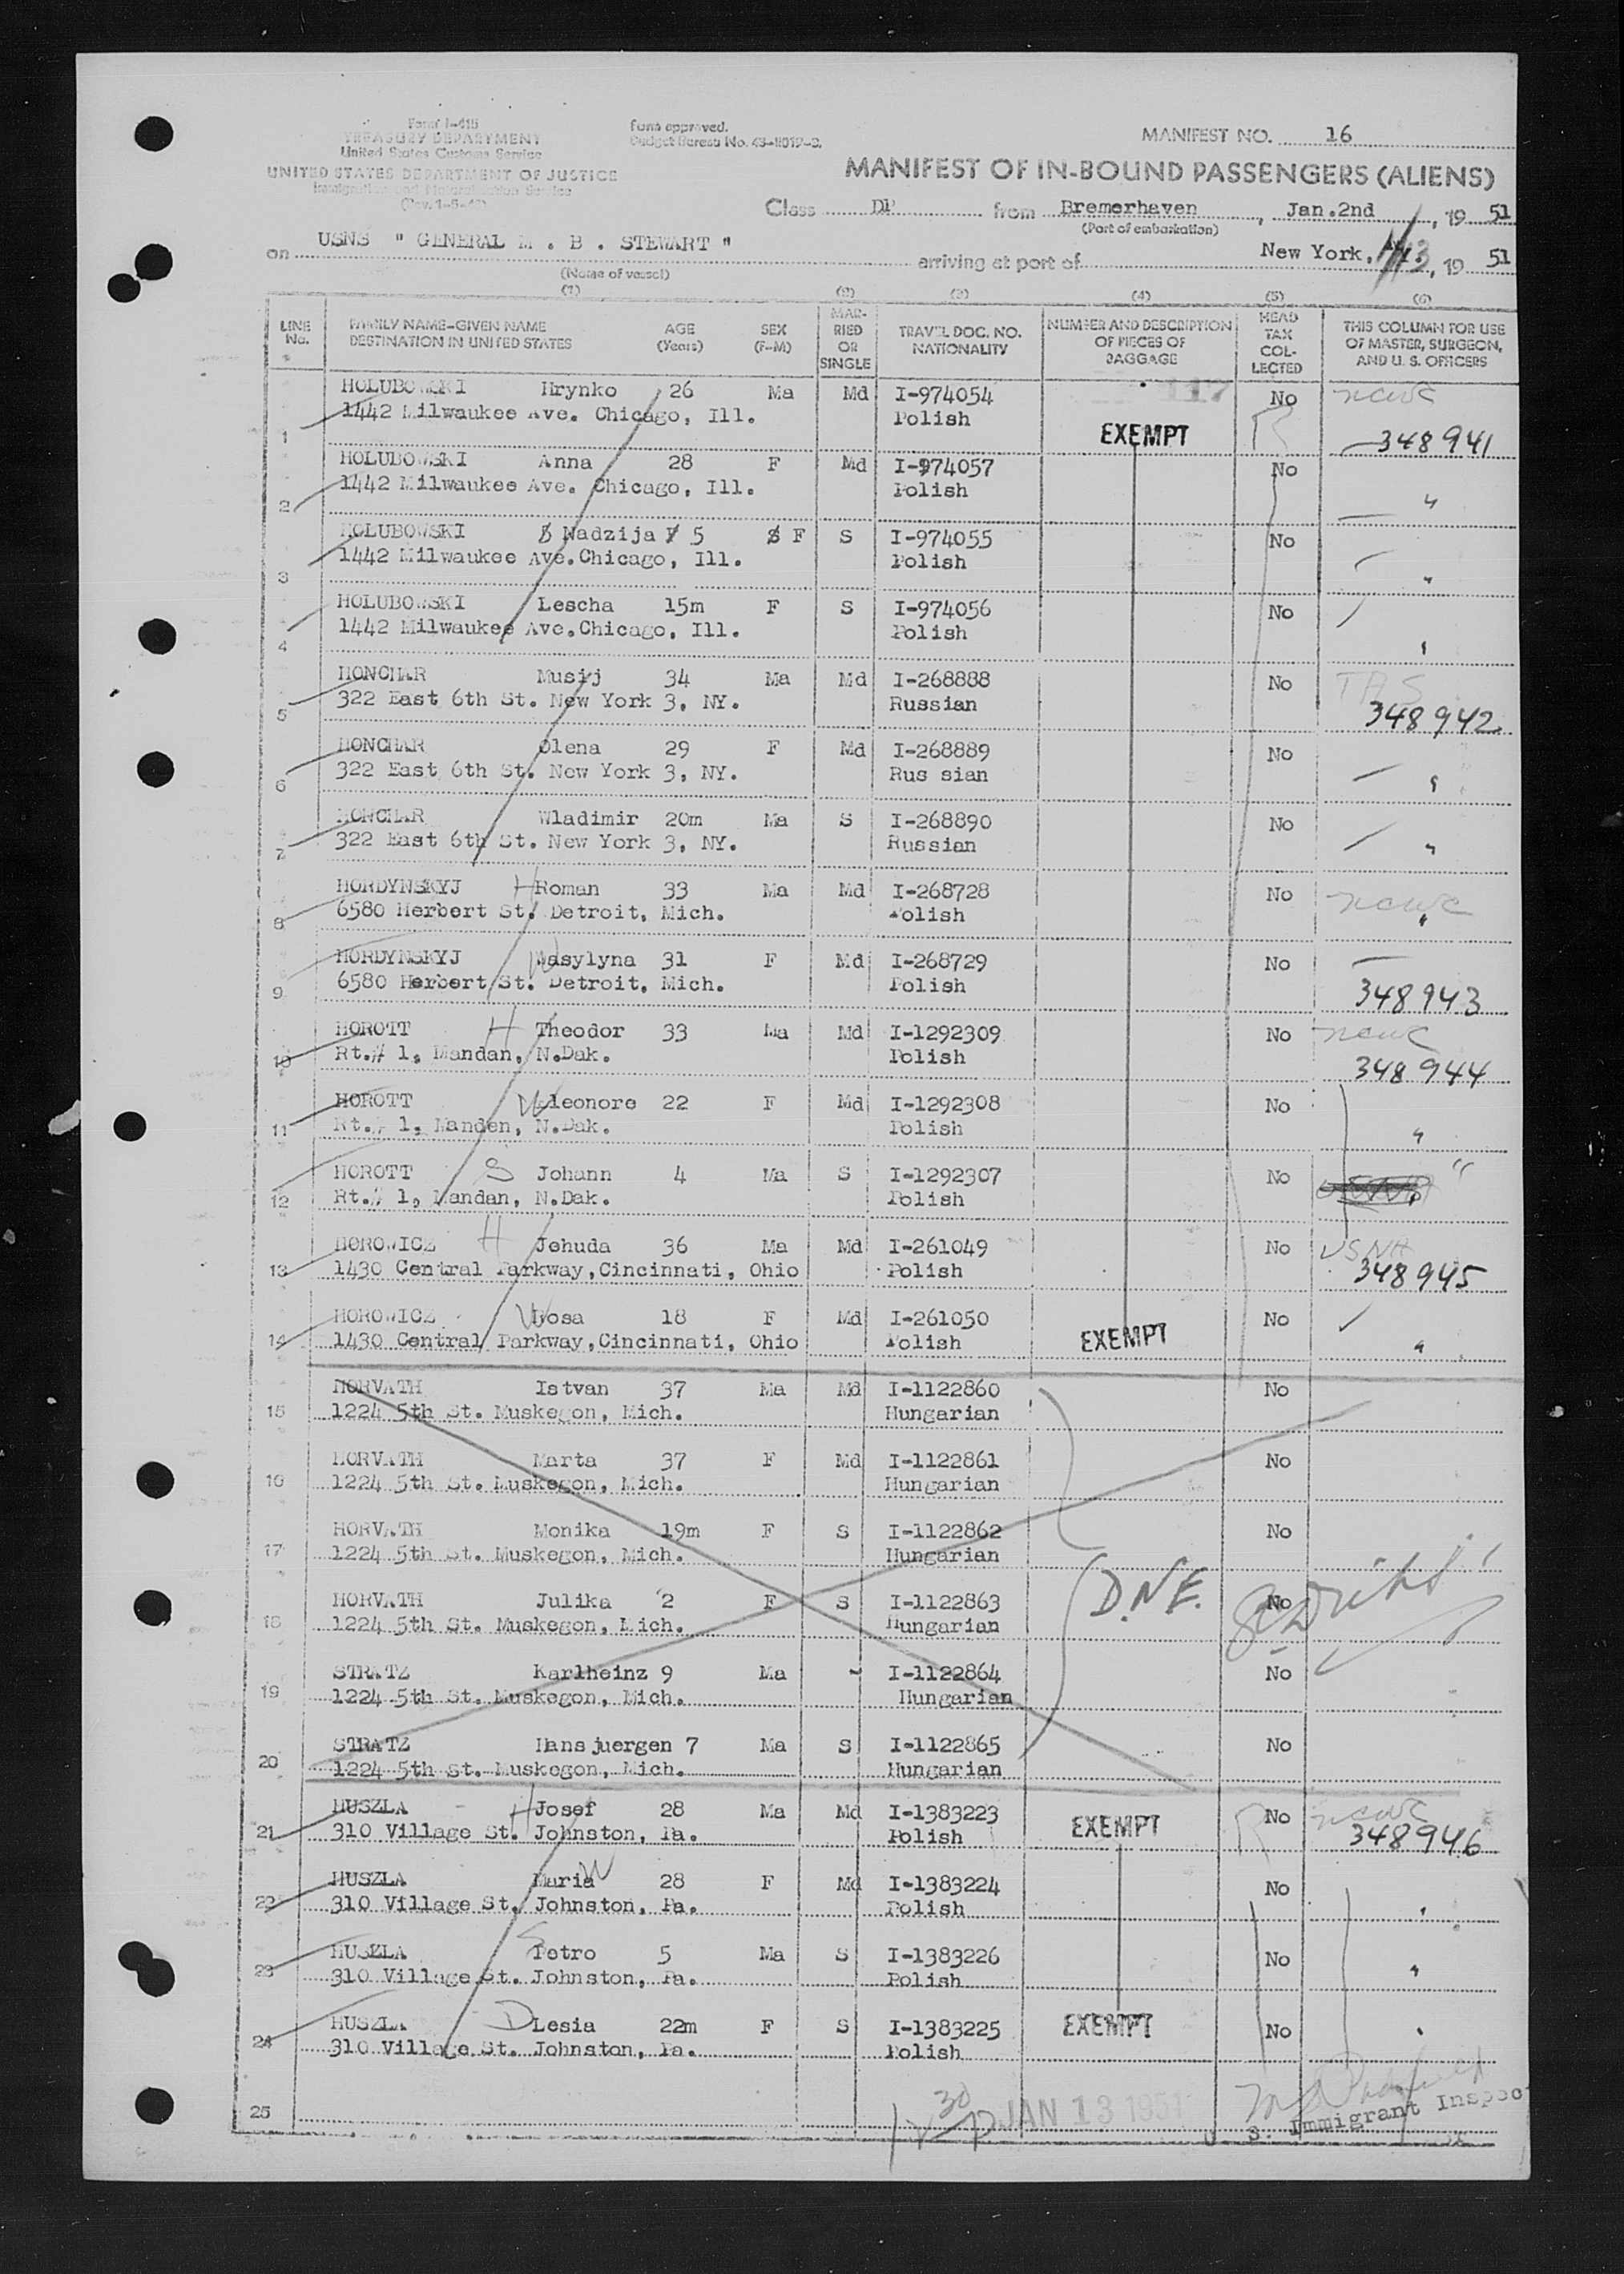 Form I-415
TREASURY DEPARTMENT
United States Customs Service
UNITED STATES DEPARTMENT OF JUSTICE
Immigration and Naturalization Service
form approved.
Budget Bureau No.
MANIFEST NO. 16
MANIFEST OF IN-BOUND PASSENGERS (ALIENS)
Class DP from Bremerhaven, Jan.2nd, 19 51
(Port of embarkation)
on USNS " GENERAL M . B . STEWART " arriving at port of New York, 1/13, 19 51
(Name of vessel)
(1) (2) (3) (4) (5) (6)
LINE No. FAMILY NAME-GIVEN NAME DESTINATION IN UNITED STATES AGE (Years) SEX (F-M) MARRIED OR SINGLE TRAVEL DOC. NO. NATIONALITY NUMBER AND DESCRIPTION OF PIECES OF BAGGAGE HEAD TAX COLLECTED THIS COLUMN FOR USE OF MASTER, SURGEON, AND U. S. OFFICERS
HOLUBOWSKI Hrynko 26 Ma Md I-974054 No ncwc
1 1442 Milwaukee Ave. Chicago, Ill. Polish EXEMPT 348941
HOLUBOWSKI Anna 28 F Md I-974057 No
2 1442 Milwaukee Ave. Chicago, Ill. Polish "
HOLUBOWSKI Nadzija 5 F S I-974055 No
3 1442 Milwaukee Ave.Chicago, Ill. Polish "
HOLUBOWSKI Lescha 15m F S I-974056 No
4 1442 Milwaukee Ave.Chicago, Ill. Polish "
HONCHAR Musij 34 Ma Md I-268888 No
5 322 East 6th St. New York 3, NY. Russian 348942
HONCHAR Olena 29 F Md I-268889 No
6 322 East 6th St. New York 3, NY. Rus sian "
HONCHAR Wladimir 20m Ma S I-268890 No
7 322 East 6th St. New York 3, NY. Russian "
HORDYNSKYJ H Roman 33 Ma Md I-268728 No ncwc
8 6580 Herbert St. Detroit, Mich. Polish "
HORDYNSKYJ W Wasylyna 31 F Md I-268729 No
9 6580 Herbert St. Detroit, Mich. Polish 348943
HOROTT H Theodor 33 Ma Md I-1292309 No ncwc
10 Rt.# 1, Mandan, N.Dak. Polish 348944
HOROTT W Eleonore 22 F Md I-1292308 No
11 Rt.# 1, Manden, N.Dak. Polish "
HOROTT S Johann 4 Ma S I-1292307 No "
12 Rt.# 1, Mandan, N.Dak. Polish
HOROWICZ H Jehuda 36 Ma Md I-261049 No USNA
13 1430 Central Parkway,Cincinnati, Ohio Polish 348945
HOROWICZ W Rosa 18 F Md I-261050 No
14 1430 Central Parkway,Cincinnati, Ohio Polish EXEMPT "
HORVATH Istvan 37 Ma Md I-1122860 No
15 1224 5th St. Muskegon, Mich. Hungarian
HORVATH Marta 37 F Md I-1122861 No
16 1224 5th St. Muskegon, Mich. Hungarian
HORVATH Monika 19m F S I-1122862 No
17 1224 5th St. Muskegon, Mich. Hungarian
HORVATH Julika 2 F S I-1122863 D.N.E. No
18 1224 5th St. Muskegon, Mich. Hungarian
STRATZ Karlheinz 9 Ma - I-1122864 No
19 1224 5th St. Muskegon, Mich. Hungarian
STRATZ Hansjuergen 7 Ma S I-1122865 No
20 1224 5th St. Muskegon, Mich. Hungarian
HUSZLA H Josef 28 Ma Md I-1383223 EXEMPT No ncwc
21 310 Village St. Johnston, Pa. Polish 348946
HUSZLA Maria W 28 F Md I-1383224 No
22 310 Village St. Johnston, Pa. Polish "
HUSZLA S Petro 5 Ma S I-1383226 No
23 310 Village St. Johnston, Pa. Polish "
HUSZLA D Lesia 22m F S I-1383225 EXEMPT No
24 310 Village St. Johnston, Pa. Polish "
25 JAN 13 1951
S. Immigrant Inspec